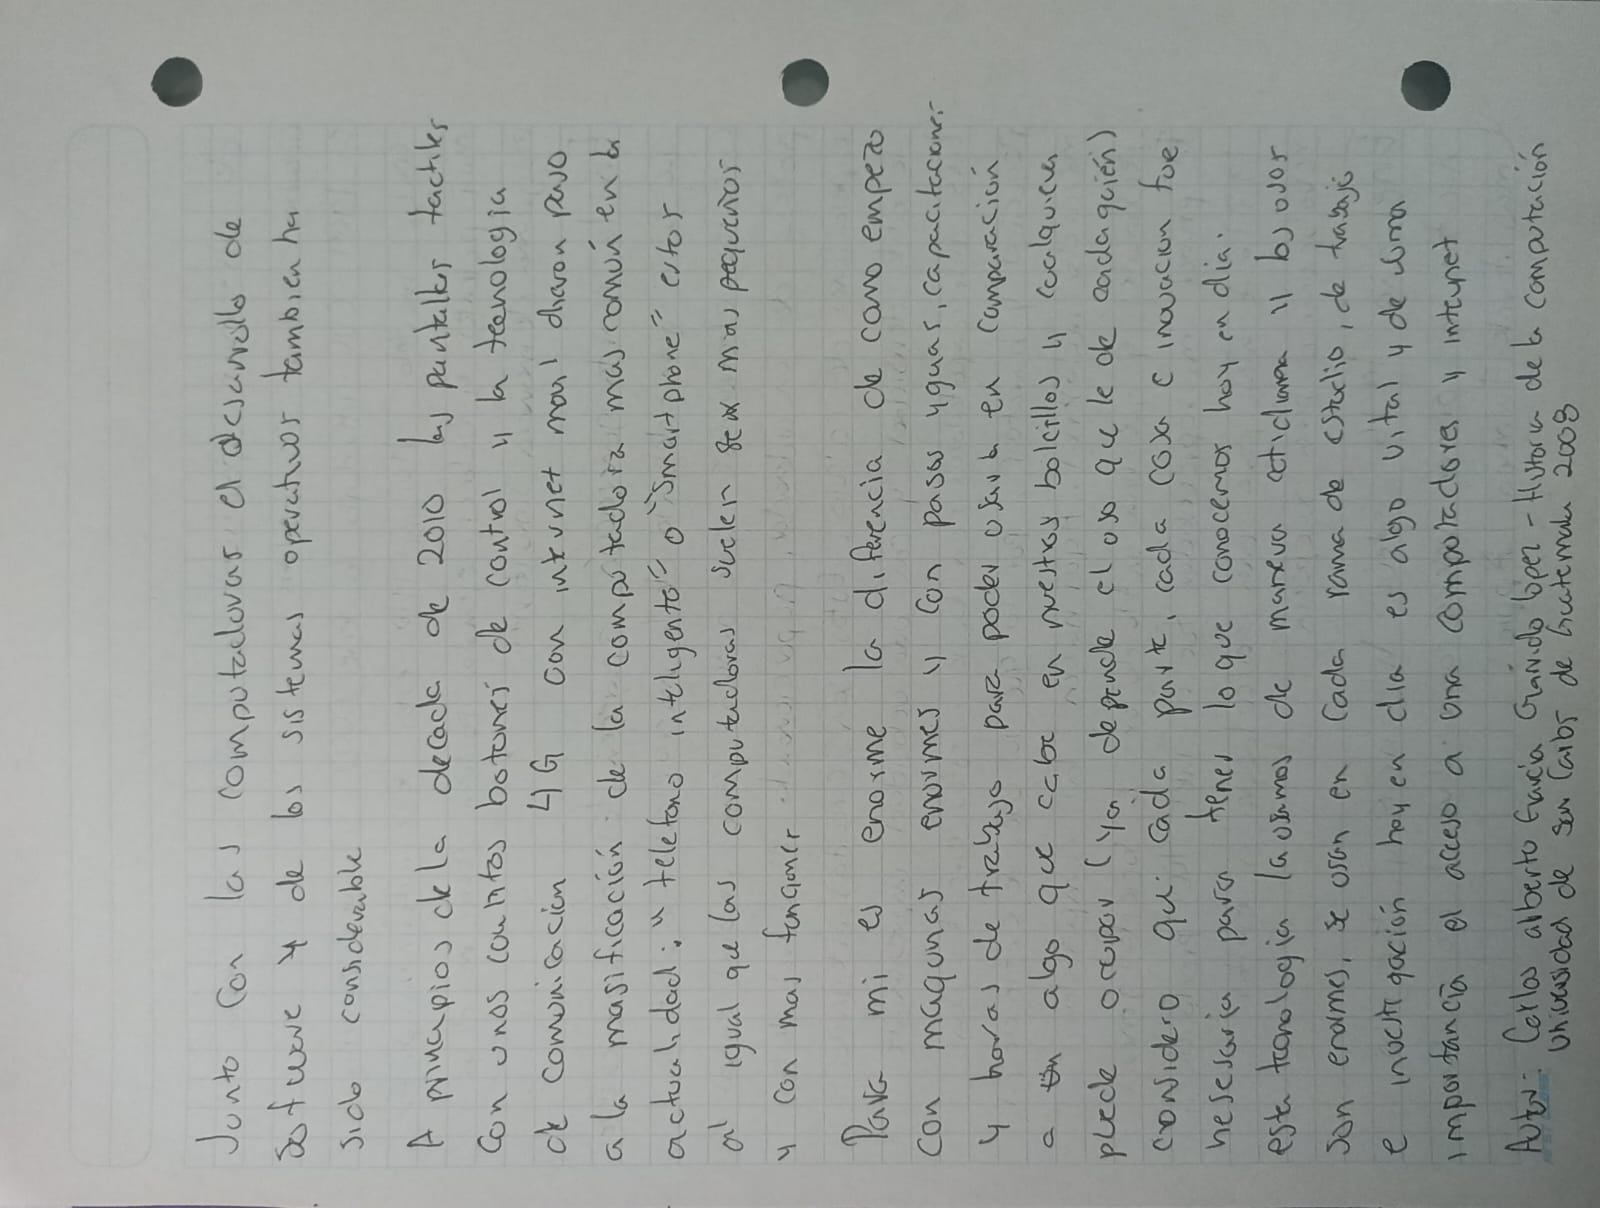 Junto con las computadoras el desarrollo de
software y de los sistemas operativos tambien ha
sido considerable
A principios de la decada de 2010 las pantallas tactiles
con unos cuantos botones de control y la tecnologia
de comunicación 4G con internet movil dieron paso
a la masificación de la computadora mas común en la
actualidad: "telefono inteligente" o "smartphone" estos
al igual que las computadoras suelen ser mas pequeños
y con mas funciones
Para mi es enorme la diferencia de como empezo
con maquinas enormes y con pasos, capacitaciones
y horas de trabajo para poder usarla en comparación
a algo que cabe en nuestros bolcillos y cualquiera
puede ocupar (Ya depende el uso que le de cada quién)
considero que cada parte, cada cosa e inovacion fue
nesesaria para tener lo que conocemos hoy en dia.
esta tecnologia la usamos de manera cotidiana y los usos
son enormes, se usan en cada rama de estudio, de trabajo
e investigación hoy en dia es algo vital y de suma
importancia el acceso a una computadora y internet
Autor: Carlos alberto Garcia Garrido lopez - Historia de la computación
Universidad de San Carlos de Guatemala 2008